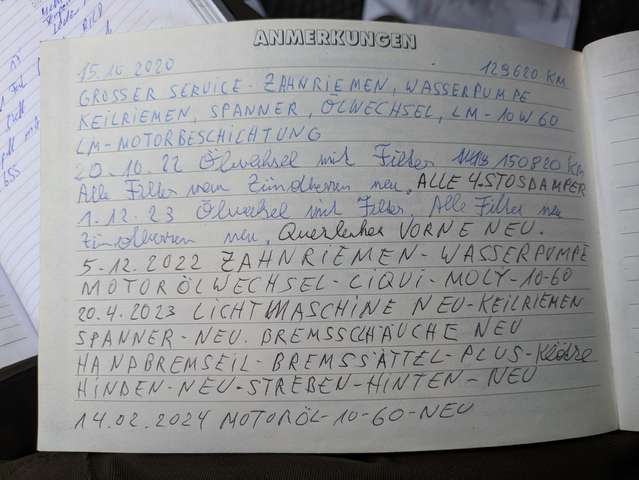 ANMERKUNGEN
15.10.2020 129620 KM
GROSSER SERVICE - ZAHNRIEMEN, WASSERPUMPE
KEILRIEMEN, SPANNER, ÖLWECHSEL, LM-10W60
LM-MOTORBESCHICHTUNG
20.10.22 Ölwechsel mit Filter 150820 KM
Alle Filter neu Zündkerzen neu, ALLE 4.STOSDAMPER
1.12.23 Ölwechsel mit Filter, Alle Filter neu
Zündkerzen neu, Querlenker VORNE NEU.
5-12.2022 ZAHNRIEMEN-WASSERPUMPE
MOTORÖLWECHSEL-LIQUI-MOLY-10-60
20.4.2023 LICHTMASCHINE NEU-KEILRIEMEN
SPANNER-NEU. BREMSSCHÄUCHE NEU
HANDBREMSEIL-BREMSSÄTTEL-PLUS-Klötze
HINDEN-NEU-STREBEN-HINTEN-NEU
14.02.2024 MOTORÖL-10-60-NEU